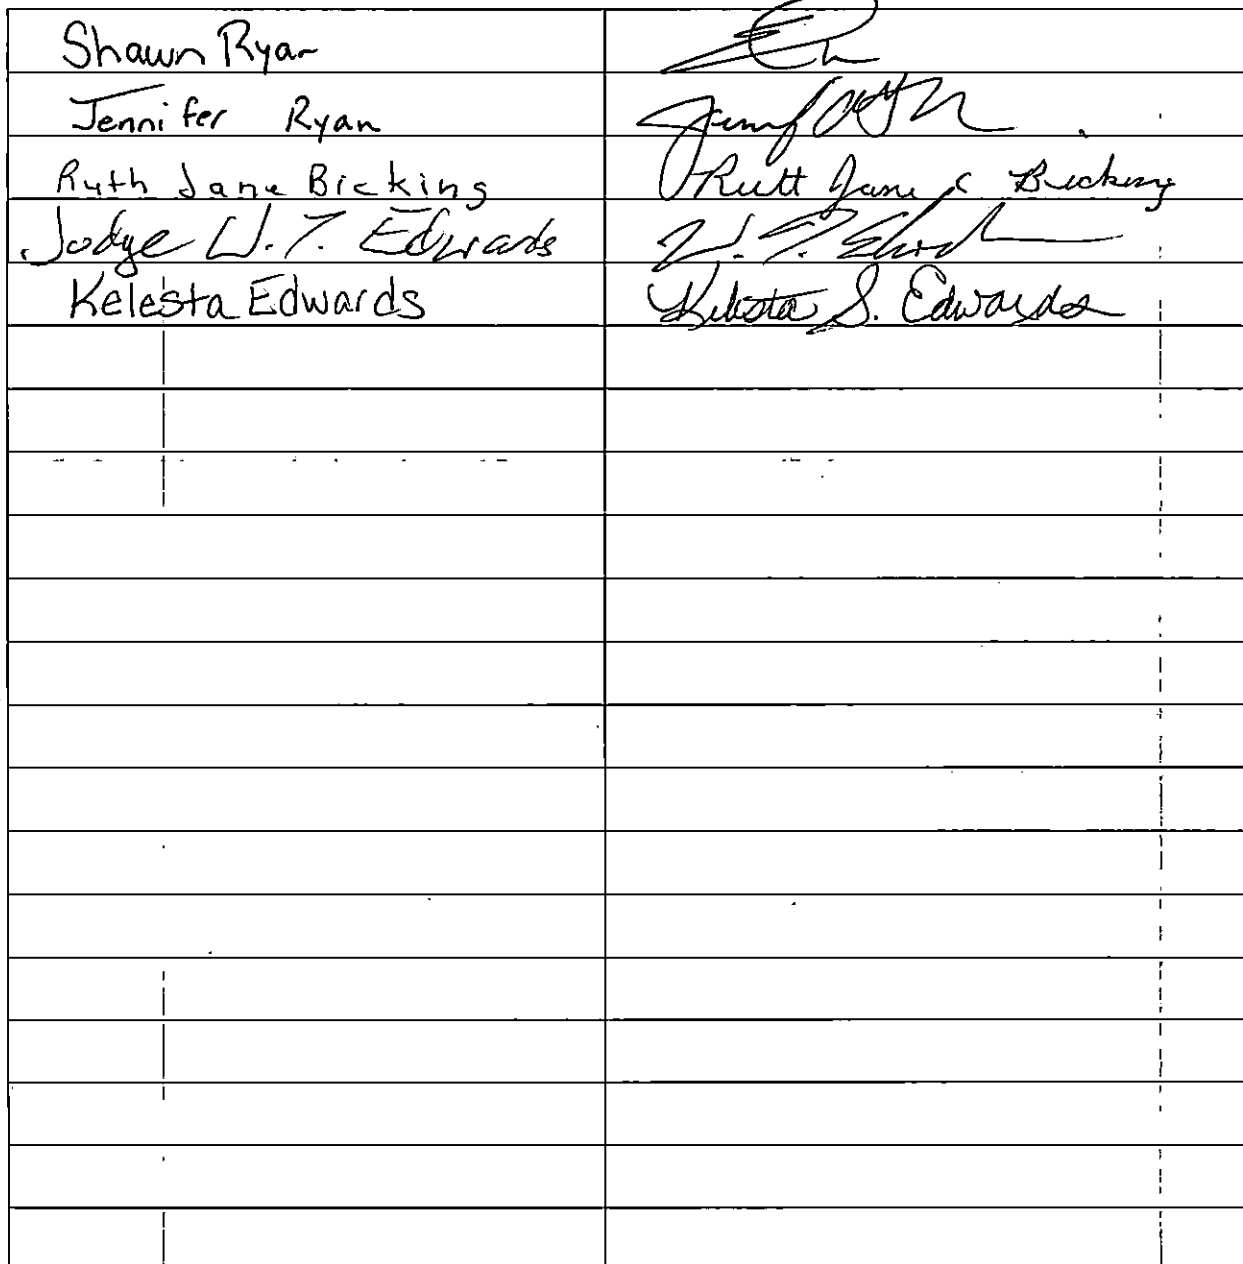 Shawn Ryan
Jennifer Ryan
Ruth Jane Bicking Ruth Jane C Bicking
Judge W. T. Edwards W. T. Edwards
Kelesta Edwards Kelesta S. Edwards